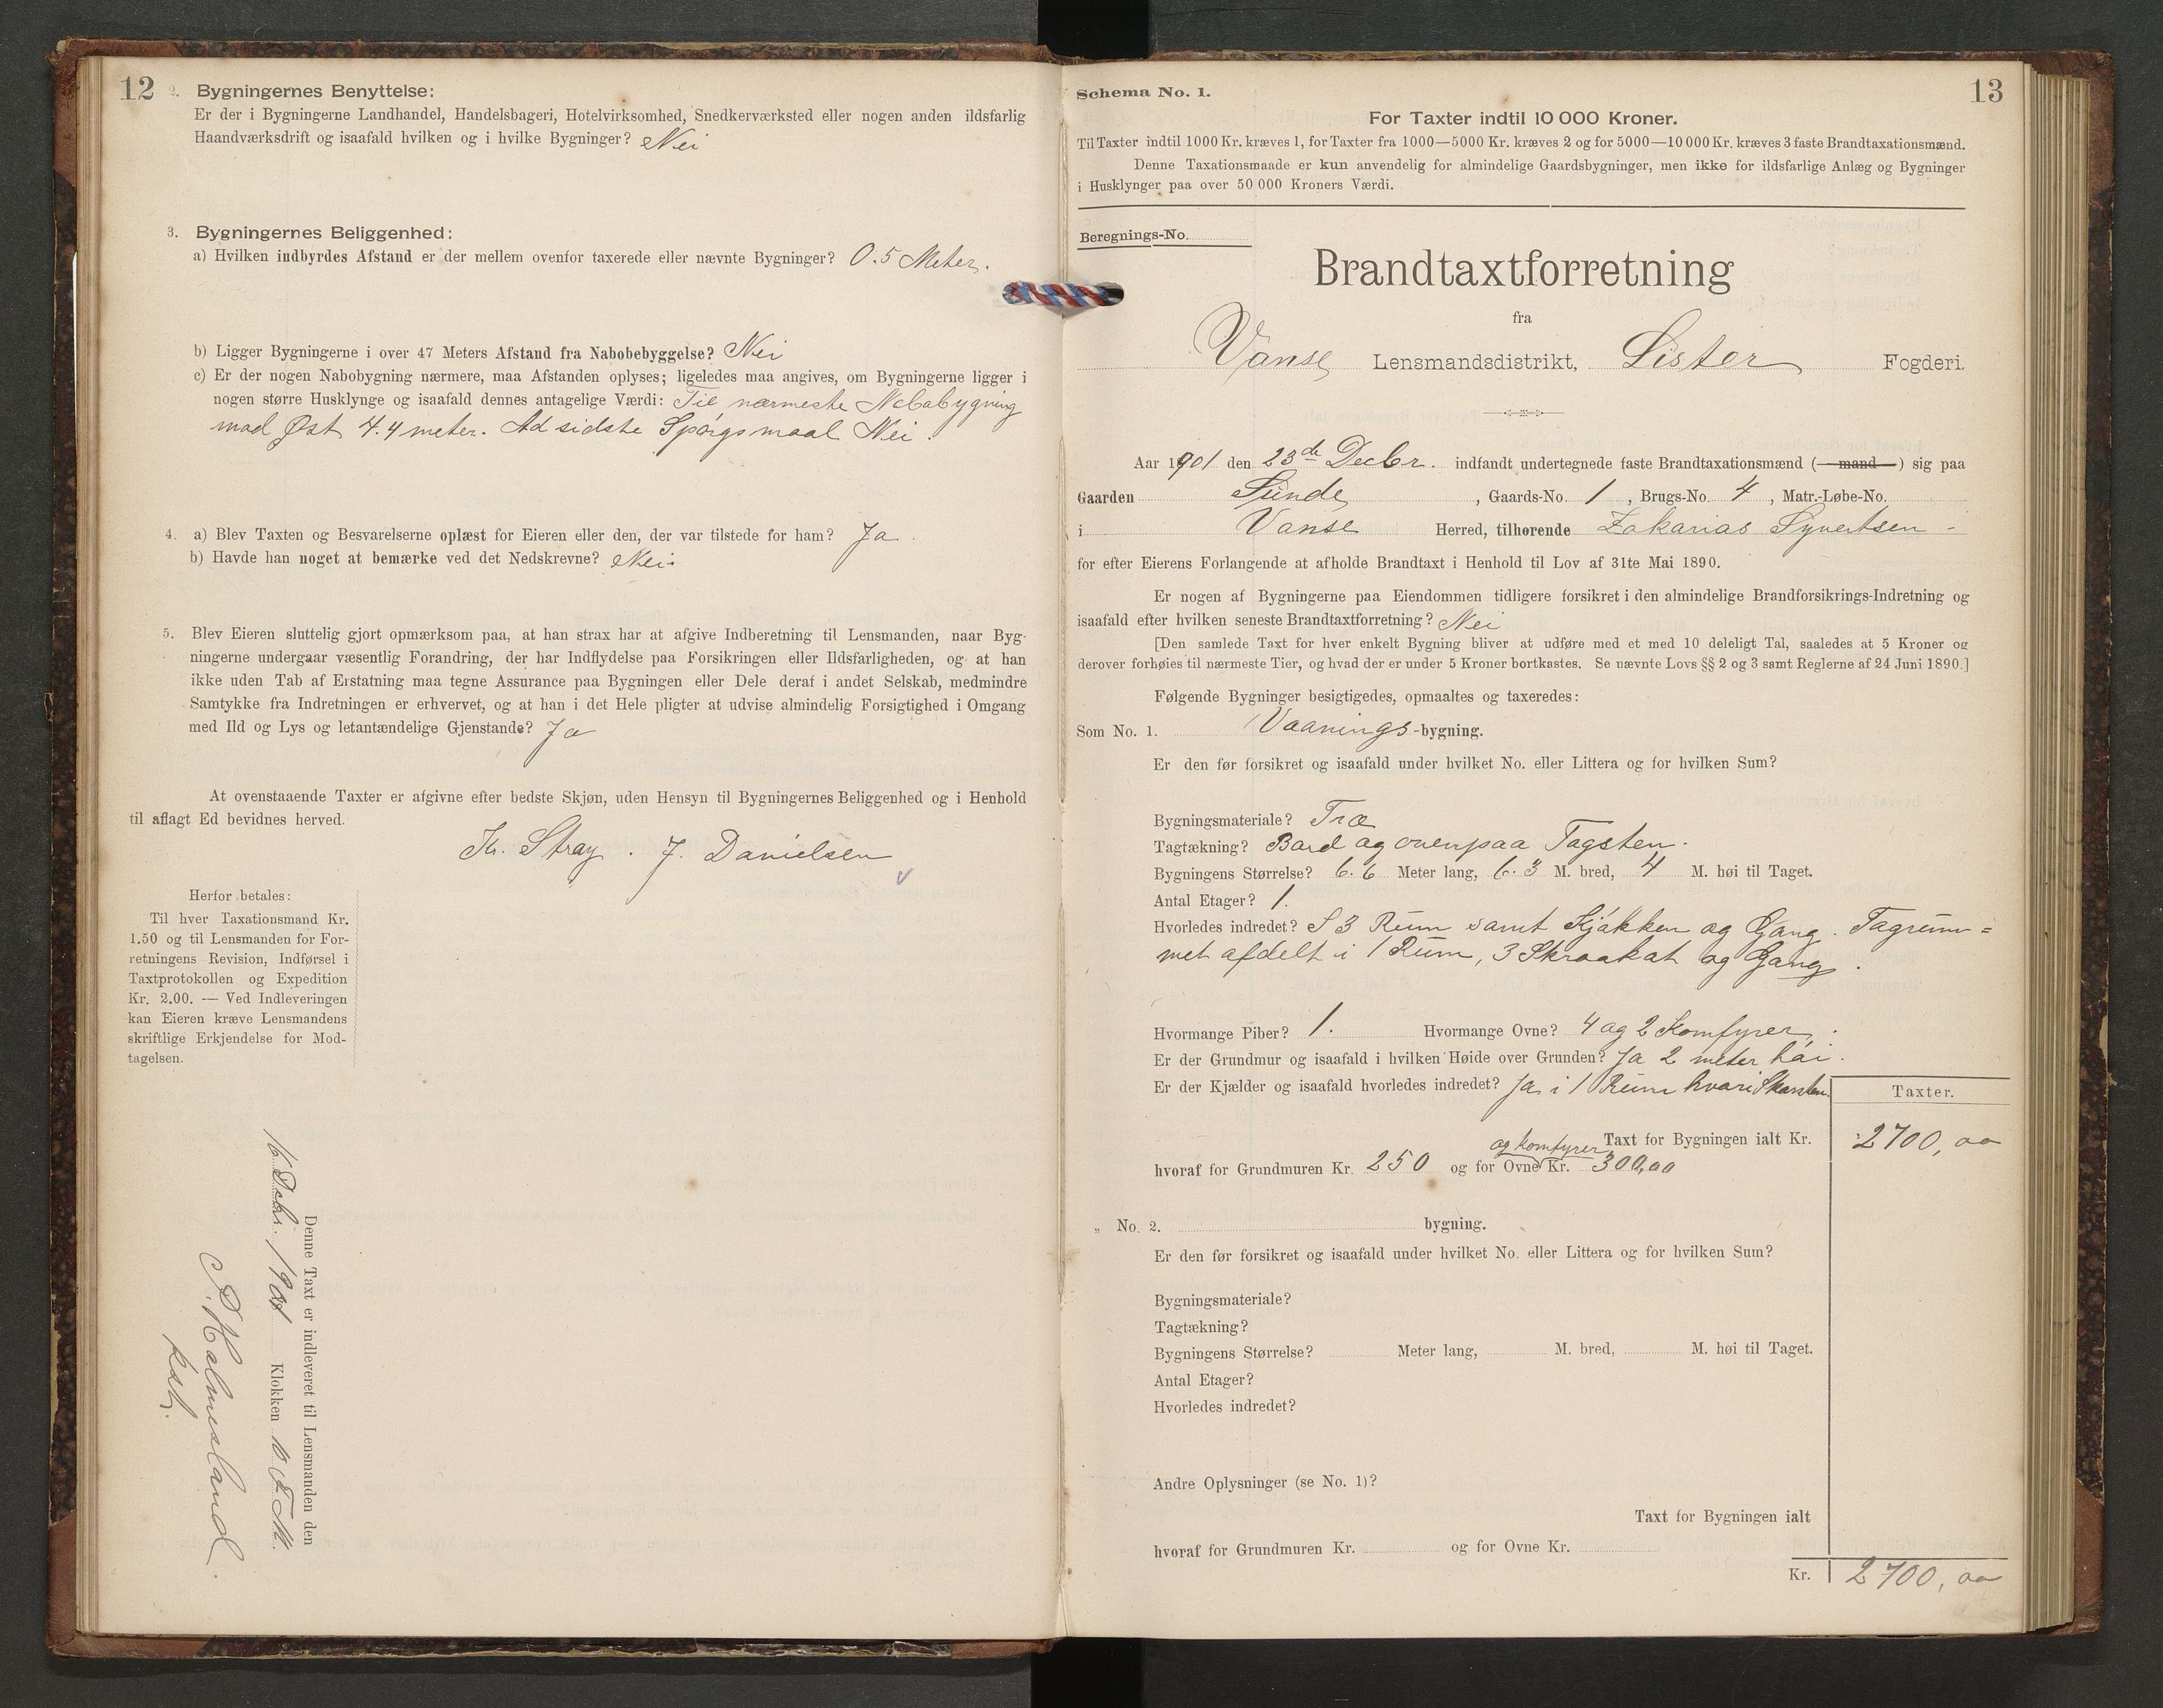 12
2. Bygningernes Benyttelse:
Er der i Bygningerne Landhandel, Handelsbageri, Hotelvirksomhed, Snedkerværksted eller nogen anden ildsfarlig
Haandværksdrift og isaafald hvilken og i hvilke Bygninger? Nei
3. Bygningernes Beliggenhed:
a) Hvilken indbyrdes Afstand er der mellem ovenfor taxerede eller nævnte Bygninger? 0.5 Meter.
b) Ligger Bygningerne i over 47 Meters Afstand fra Nabobebyggelse? Nei
c) Er der nogen Nabobygning nærmere, maa Afstanden oplyses; ligeledes maa angives, om Bygningerne ligger i
nogen større Husklynge og isaafald dennes antagelige Værdi: Til nærmeste Nabobygning
mod Øst 4.4 meter. Ad sidste Spørgsmaal Nei.
4. a) Blev Taxten og Besvarelserne oplæst for Eieren eller den, der var tilstede for ham? Ja.
b) Havde han noget at bemærke ved det Nedskrevne? Nei.
5. Blev Eieren sluttelig gjort opmærksom paa, at han strax har at afgive Indberetning til Lensmanden, naar Byg-
ningerne undergaar væsentlig Forandring, der har Indflydelse paa Forsikringen eller Ildsfarligheden, og at han
ikke uden Tab af Erstatning maa tegne Assurance paa Bygningen eller Dele deraf i andet Selskab, medmindre
Samtykke fra Indretningen er erhvervet, og at han i det Hele pligter at udvise almindelig Forsigtighed i Omgang
med Ild og Lys og letantændelige Gjenstande? Ja
At ovenstaaende Taxter er afgivne efter bedste Skjøn, uden Hensyn til Bygningernes Beliggenhed og i Henhold
til aflagt Ed bevidnes herved.
Kr. Stray. J. Danielsen
Herfor betales:
Til hver Taxationsmand Kr.
1.50 og til Lensmanden for For-
retningens Revision, Indførsel i
Taxtprotokollen og Expedition
Kr. 2.00. — Ved Indleveringen
kan Eieren kræve Lensmandens
skriftlige Erkjendelse for Mod-
tagelsen.
Denne Taxt er indleveret til Lensmanden den
Klokken 10 F.M.
Kst.
13
Schema No. 1.
For Taxter indtil 10 000 Kroner.
Til Taxter indtil 1000 Kr. kræves 1, for Taxter fra 1000—5000 Kr. kræves 2 og for 5000—10 000 Kr. kræves 3 faste Brandtaxationsmænd.
Denne Taxationsmaade er kun anvendelig for almindelige Gaardsbygninger, men ikke for ildsfarlige Anlæg og Bygninger
i Husklynger paa over 50 000 Kroners Værdi.
Beregnings-No.
Brandtaxtforretning
fra
Vanse Lensmandsdistrikt, Lister Fogderi.
Aar 1901 den 23de Decbr. indfandt undertegnede faste Brandtaxationsmænd (— mand —) sig paa
Gaarden Sunde, Gaards-No. 1, Brugs-No. 4, Matr.-Løbe-No.
i Vanse Herred, tilhørende Zakarias Syvertsen -
for efter Eierens Forlangende at afholde Brandtaxt i Henhold til Lov af 31te Mai 1890.
Er nogen af Bygningerne paa Eiendommen tidligere forsikret i den almindelige Brandforsikrings-Indretning og
isaafald efter hvilken seneste Brandtaxtforretning? Nei
[Den samlede Taxt for hver enkelt Bygning bliver at udføre med et med 10 deleligt Tal, saaledes at 5 Kroner og
derover forhøies til nærmeste Tier, og hvad der er under 5 Kroner bortkastes. Se nævnte Lovs §§ 2 og 3 samt Reglerne af 24 Juni 1890.]
Følgende Bygninger besigtigedes, opmaaltes og taxeredes:
Som No. 1. Vaanings-bygning.
Er den før forsikret og isaafald under hvilket No. eller Littera og for hvilken Sum?
Bygningsmateriale? Træ
Tagtækning? Bord og ovenpaa Tagsten.
Bygningens Størrelse? 6.6 Meter lang, 6.3 M. bred, 4 M. høi til Taget.
Antal Etager? 1.
Hvorledes indredet? I 3 Rum samt Kjøkken og Gang. Tagrum=
met afdelt i 1 Rum, 3 Skraakot og Gang.
Hvormange Piber? 1. Hvormange Ovne? 4 og 2 Komfyrer.
Er der Grundmur og isaafald i hvilken Høide over Grunden? Ja 2 meter høi.
Er der Kjælder og isaafald hvorledes indredet? Ja i 1 Rum hvori Skorsten.
Taxter.
Taxt for Bygningen ialt Kr. 2700,00
og komfyrer
hvoraf for Grundmuren Kr. 250 og for Ovne Kr. 300,00
„ No. 2. bygning.
Er den før forsikret og isaafald under hvilket No. eller Littera og for hvilken Sum?
Bygningsmateriale?
Tagtækning?
Bygningens Størrelse? Meter lang, M. bred, M. høi til Taget.
Antal Etager?
Hvorledes indredet?
Andre Oplysninger (se No. 1)?
Taxt for Bygningen ialt
hvoraf for Grundmuren Kr. og for Ovne Kr.
Kr. 2700,00